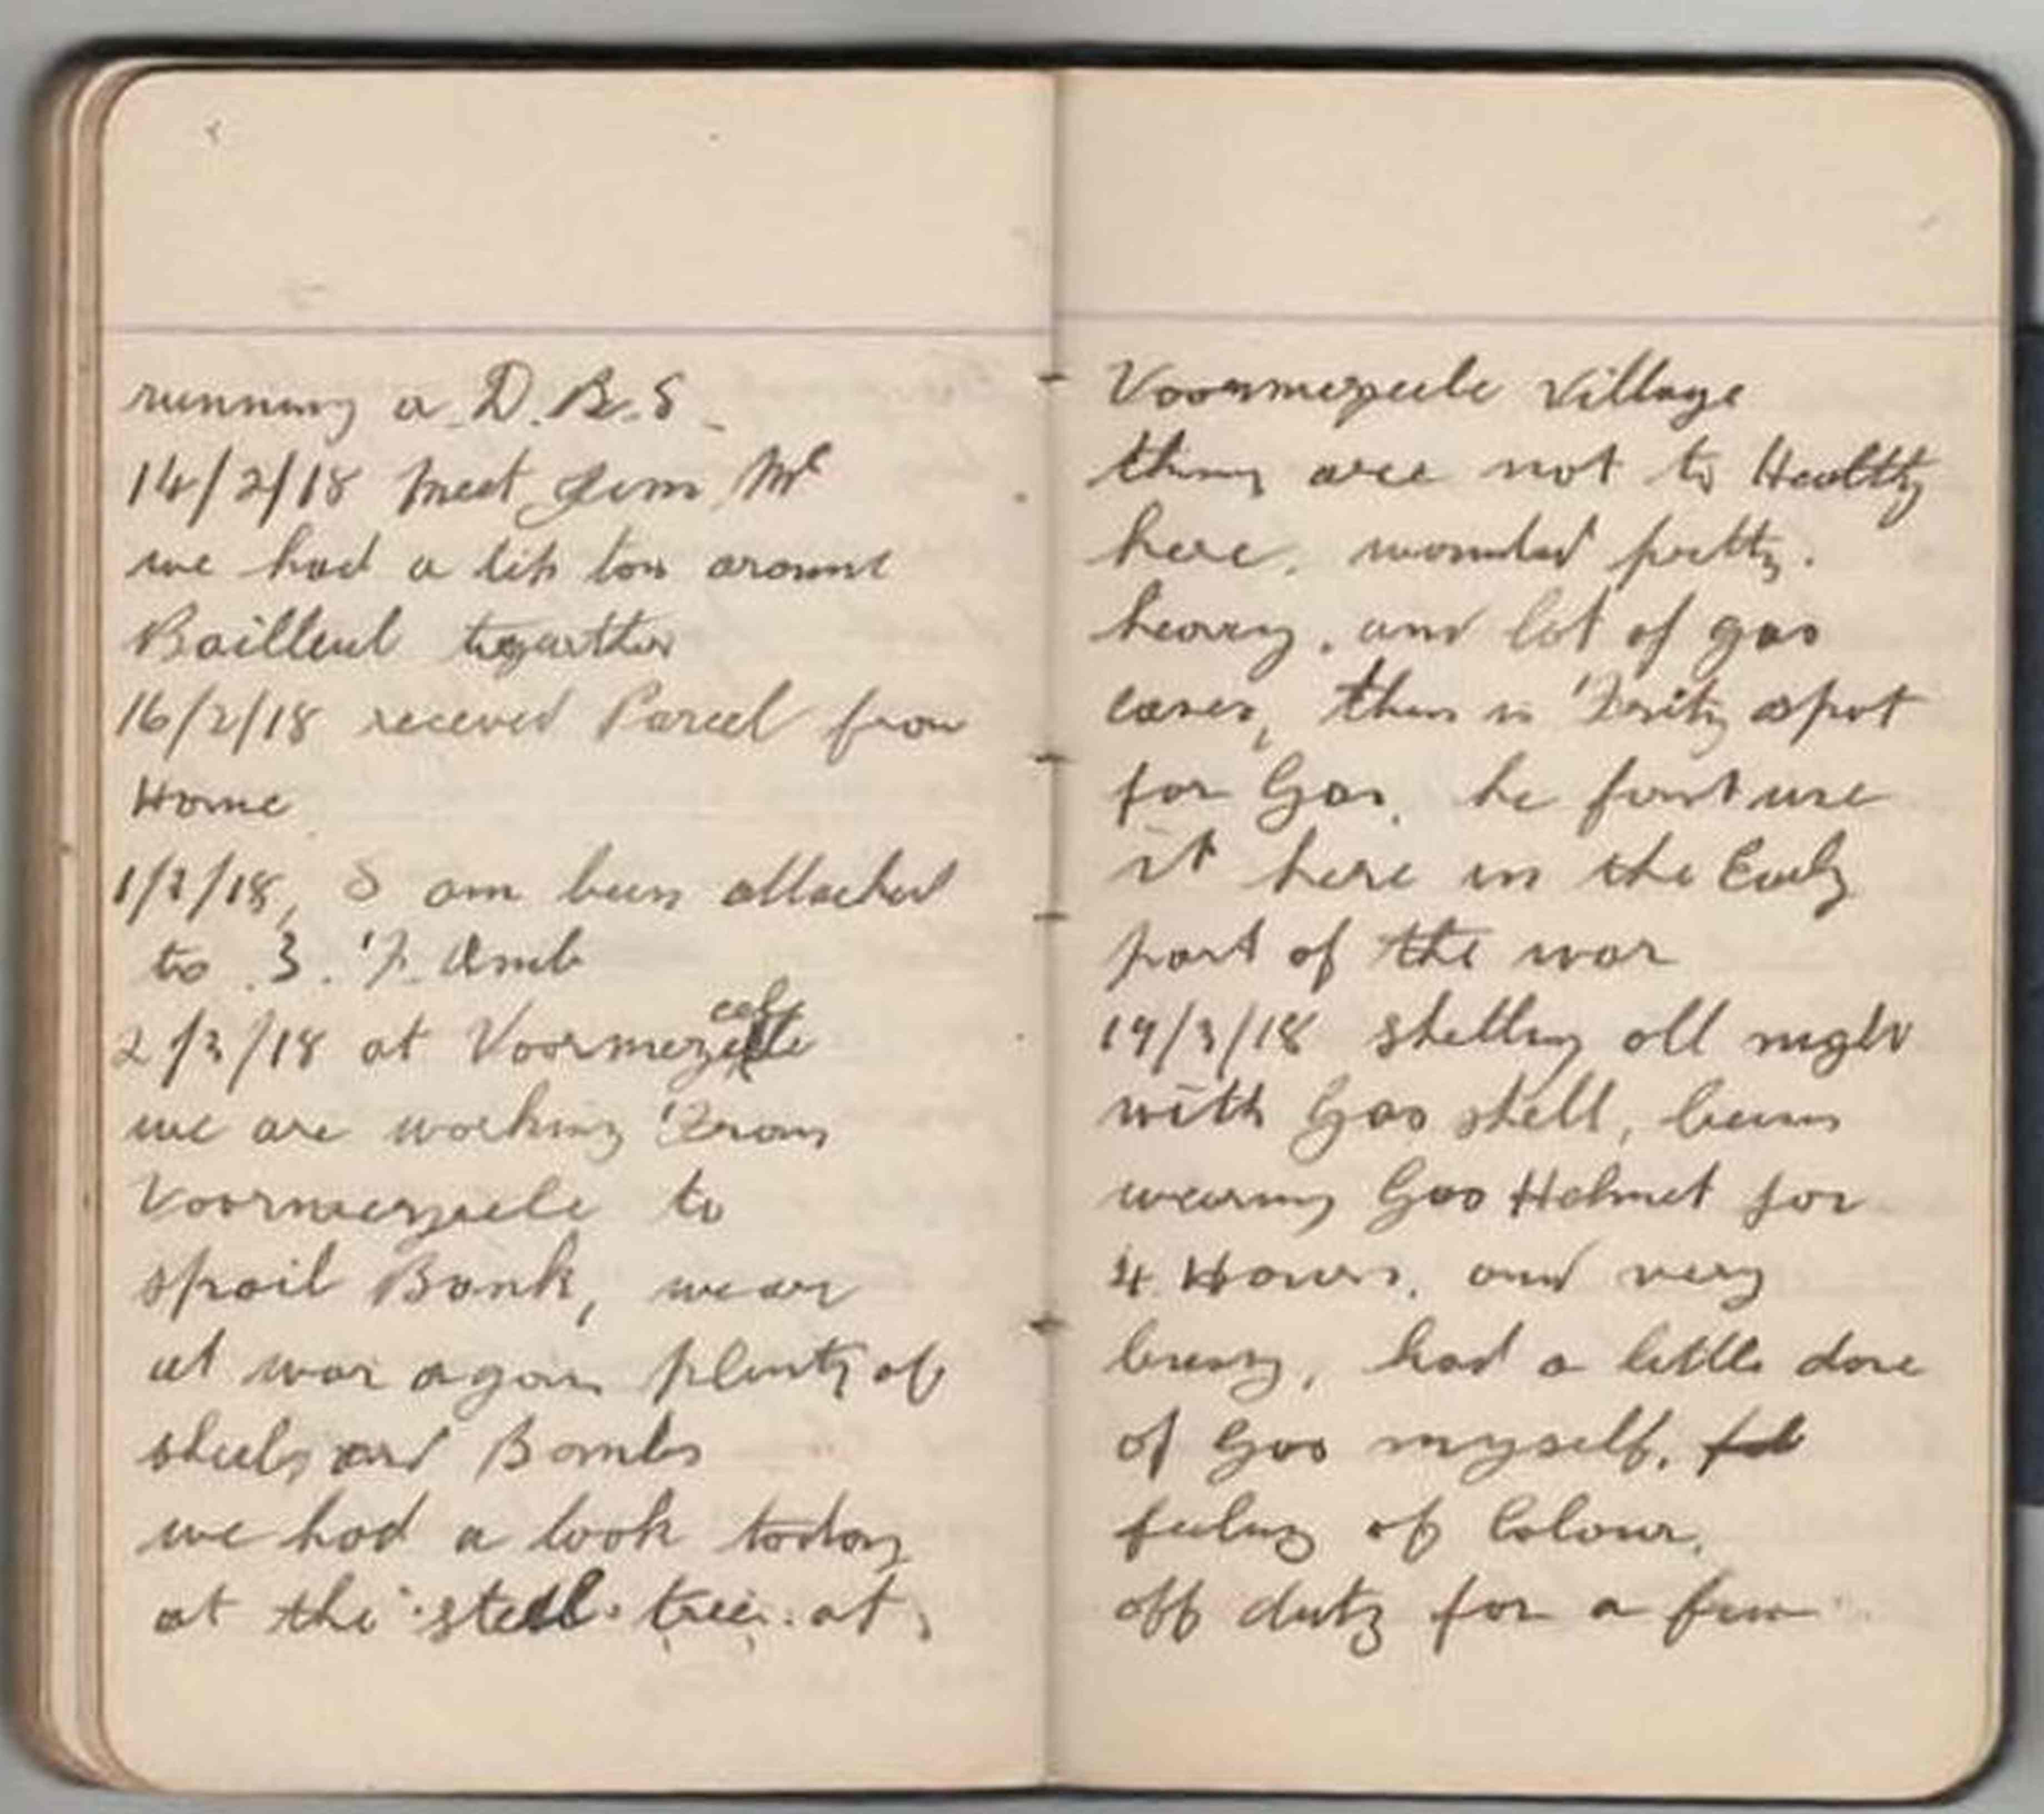 running a D.B.S.
14/2/18 meet Jim Mc
we had a around
Bailleul togeather
16/2/18 received Parcel from
Home
1/3/18, I am been attached
to 3. F. Amb
2/3/18 at Voormezeele
we are working From
Voormezeele to
spoil Bank, wear
at war again plenty of
shells and Bombs
we had a look today
at the steel tree at
Voormezeele Village
thing are not to Healthy
here. wounded pretty.
heavy, and lot of gas
cases, this is Fritz spot
for Gas. he first use
it here in the Early
part of the war
19/3/18 shelling all night
with Gas shell, been
wearing Gas Helmet for
4 Hours. and very
busy, had a little dose
of Gas myself.
feeling of Colour.
off duty for a few